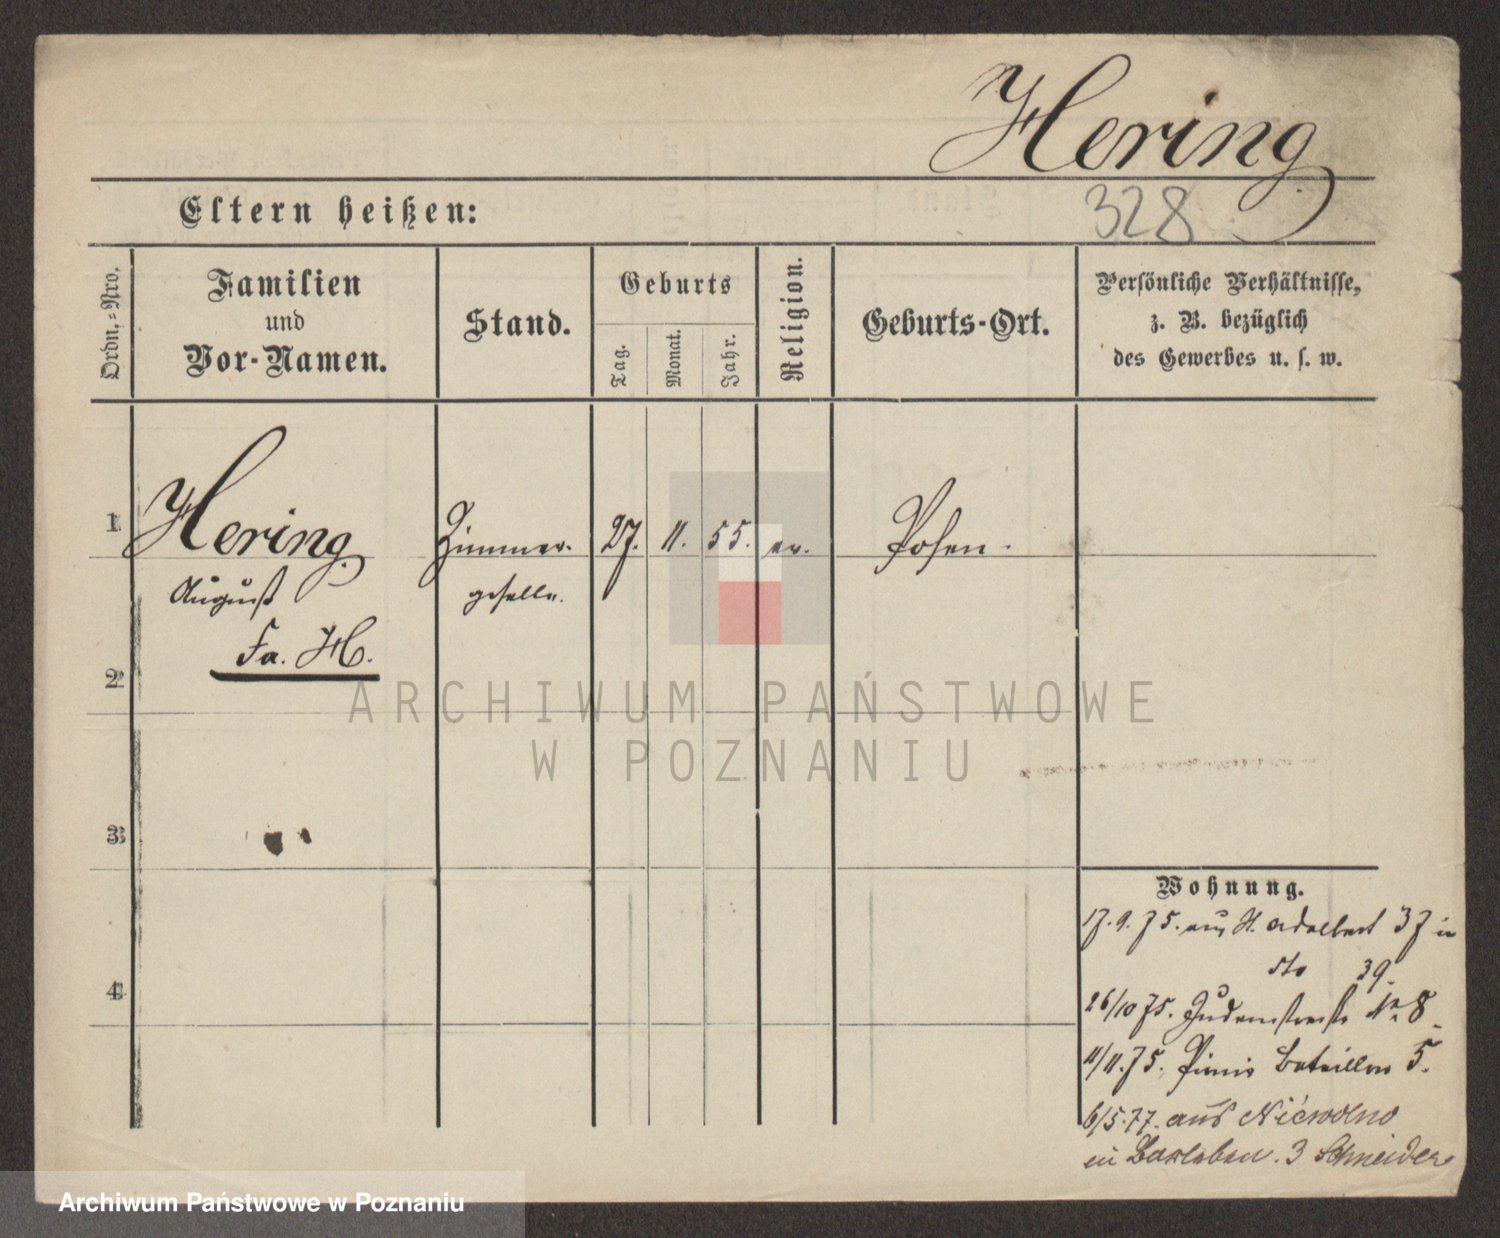 Hering
328
Eltern heißen:
Ordn.-Nro.
Familien
und
Vor-Namen.
Stand.
Geburts
Tag.
Monat.
Jahr.
Religion.
Geburts-Ort.
Persönliche Verhältnisse,
z. B. bezüglich
des Gewerbes u. s. w.
1 Hering Zimmer- 27. 11. 55. ev. Posen.
August geselle.
Fa. H.
2
ARCHIWUM PAŃSTWOWE
W POZNANIU
3
Wohnung.
17.9.75. aus St. Adalbert 37 in
dto 39.
4
26/10 75. Judenstraße No 8
11/11.75. Pionir Bataillon 5.
6/5.77. aus
in 3 Schneider
Archiwum Państwowe w Poznaniu